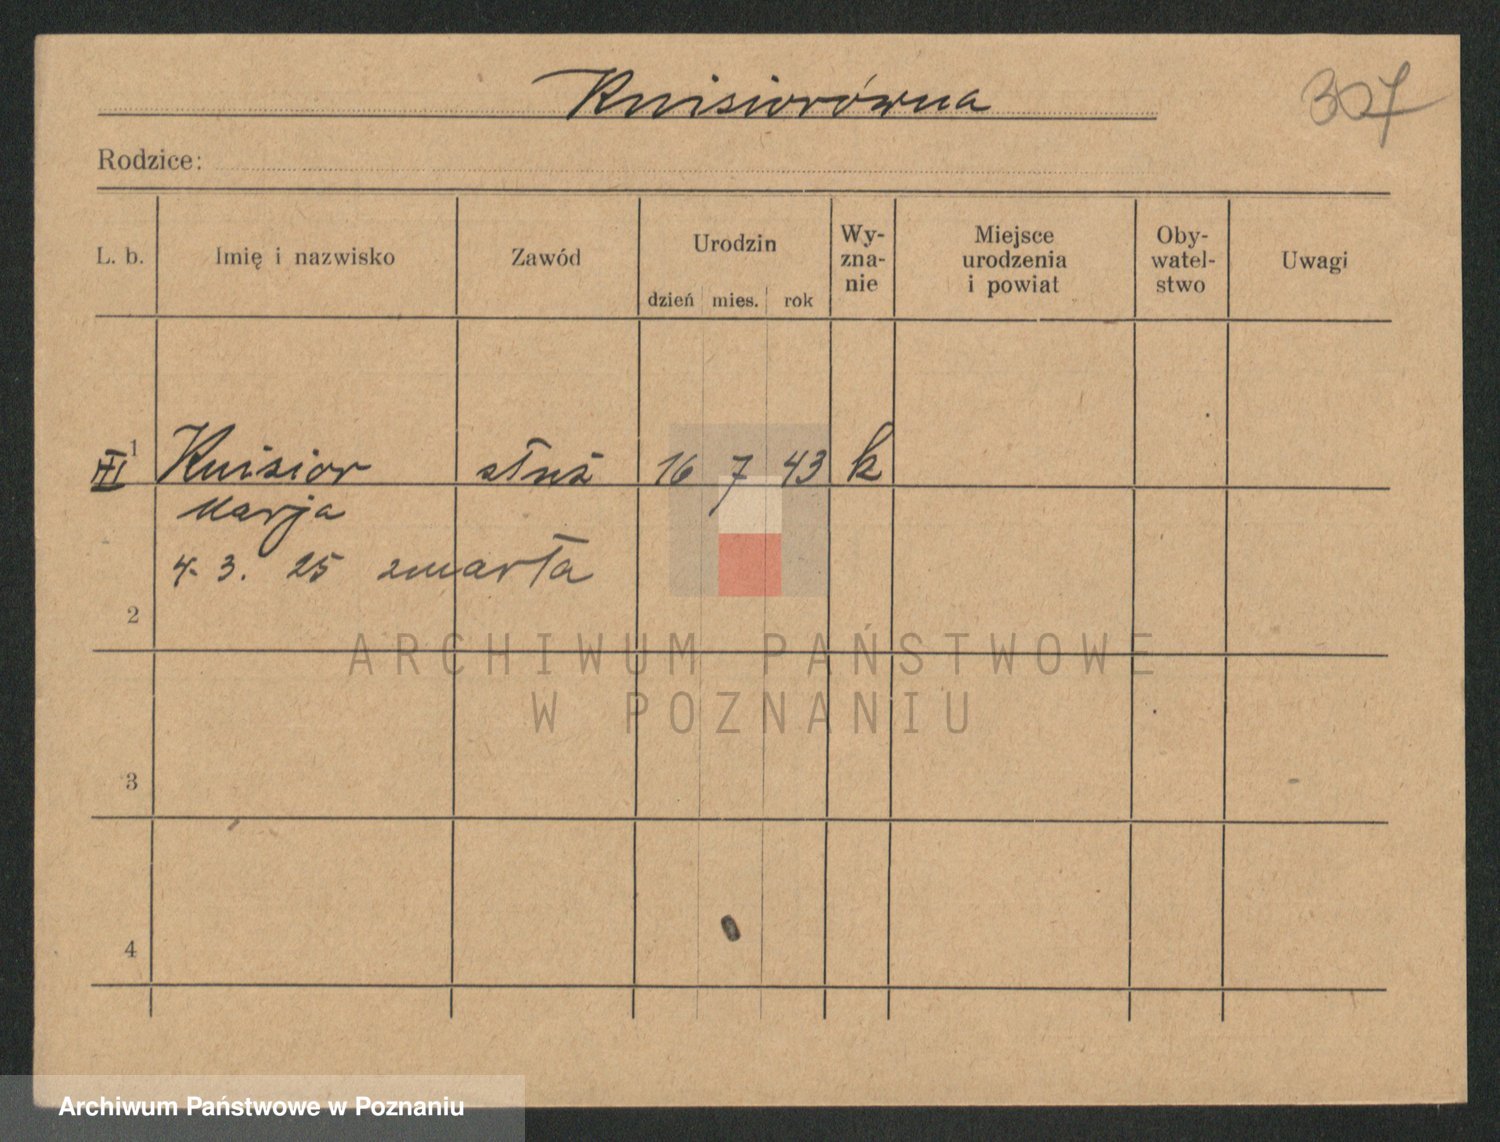 Knisiorówna
307
Rodzice:
L. b.
Imię i nazwisko
Zawód
Urodzin
dzień mies. rok
Wy-
zna-
nie
Miejsce
urodzenia
i powiat
Oby-
watel-
stwo
Uwagi
1
III Knisior służ 16 7 43 k
Marja
4. 3. 25 zmarła
2
3
4
ARCHIWUM PAŃSTWOWE
W POZNANIU
Archiwum Państwowe w Poznaniu